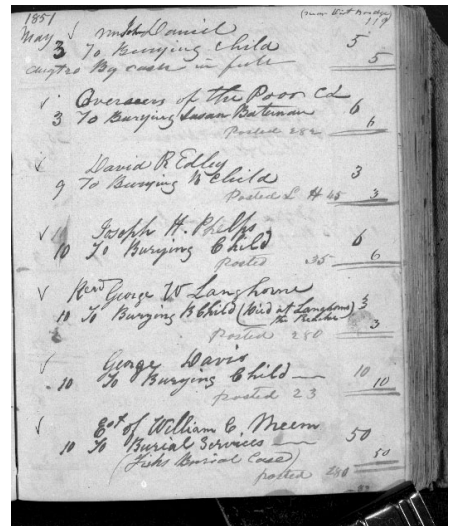 1851 (near Port Bridge) 119
May √ Mr John Daniel 5
3 To Burying Child 5
Augt 20 By cash in full
√ Overseers of the Poor Cd 6
3 To Burying Susan Bateman 6
Posted 282
√ David R Edley 3
9 To Burying B Child 3
Posted L H 45
√ Joseph H. Phelps 6
10 To Burying Child 6
posted 35
√ Revd George W Langhorne 3
10 To Burying B Child (Died at Langhorns 3
posted 280
√ George Davis 10
10 To Burying Child 10
posted 23
√ Est of William C. Meem 50
10 To Burial Services 50
(Fisks Burial Case)
posted 280